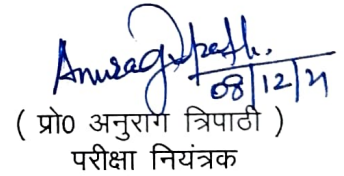 Anurag Tripathi.
08/12/21
( प्रो0 अनुराग त्रिपाठी )
परीक्षा नियंत्रक